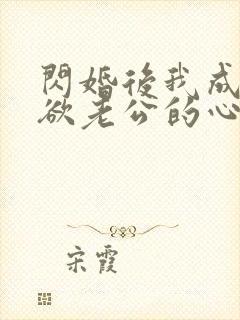 閃婚後我成
欲老公的心
宋霞